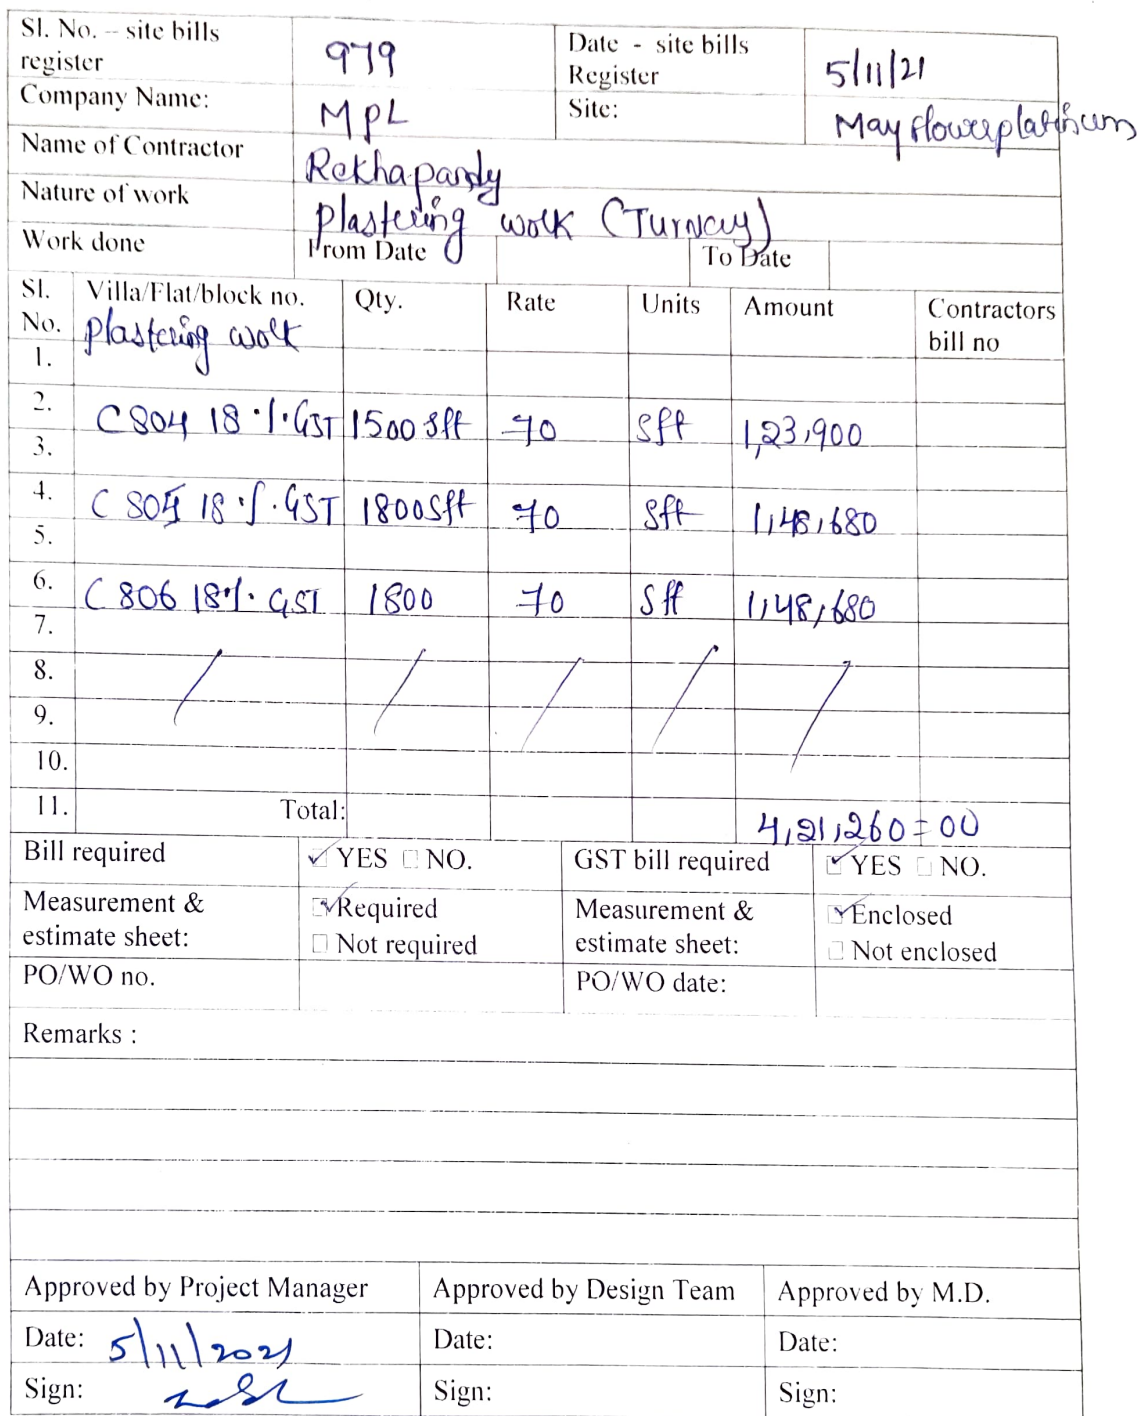 Sl. No. – site bills register 979 Date - site bills Register 5/11/21
Company Name: MPL Site: Mayflowerplatinum
Name of Contractor Rekhapandy
Nature of work Plastering work (Turnay)
Work done From Date To Date
Sl. No. Villa/Flat/block no. Qty. Rate Units Amount Contractors bill no
Plastering work
1.
2. C 804 18 % GST 1500 Sft 70 Sft 1,23,900
3.
4. C 805 18 % GST 1800 Sft 70 Sft 1,48,680
5.
6. C 806 18% GST 1800 70 Sft 1,48,680
7.
8.
9.
10.
11. Total: 4,21,260=00
Bill required YES NO. GST bill required YES NO.
Measurement & estimate sheet: Required Not required Measurement & estimate sheet: Enclosed Not enclosed
PO/WO no. PO/WO date:
Remarks :
Approved by Project Manager Approved by Design Team Approved by M.D.
Date: 5/11/2021 Date: Date:
Sign: Sign: Sign: